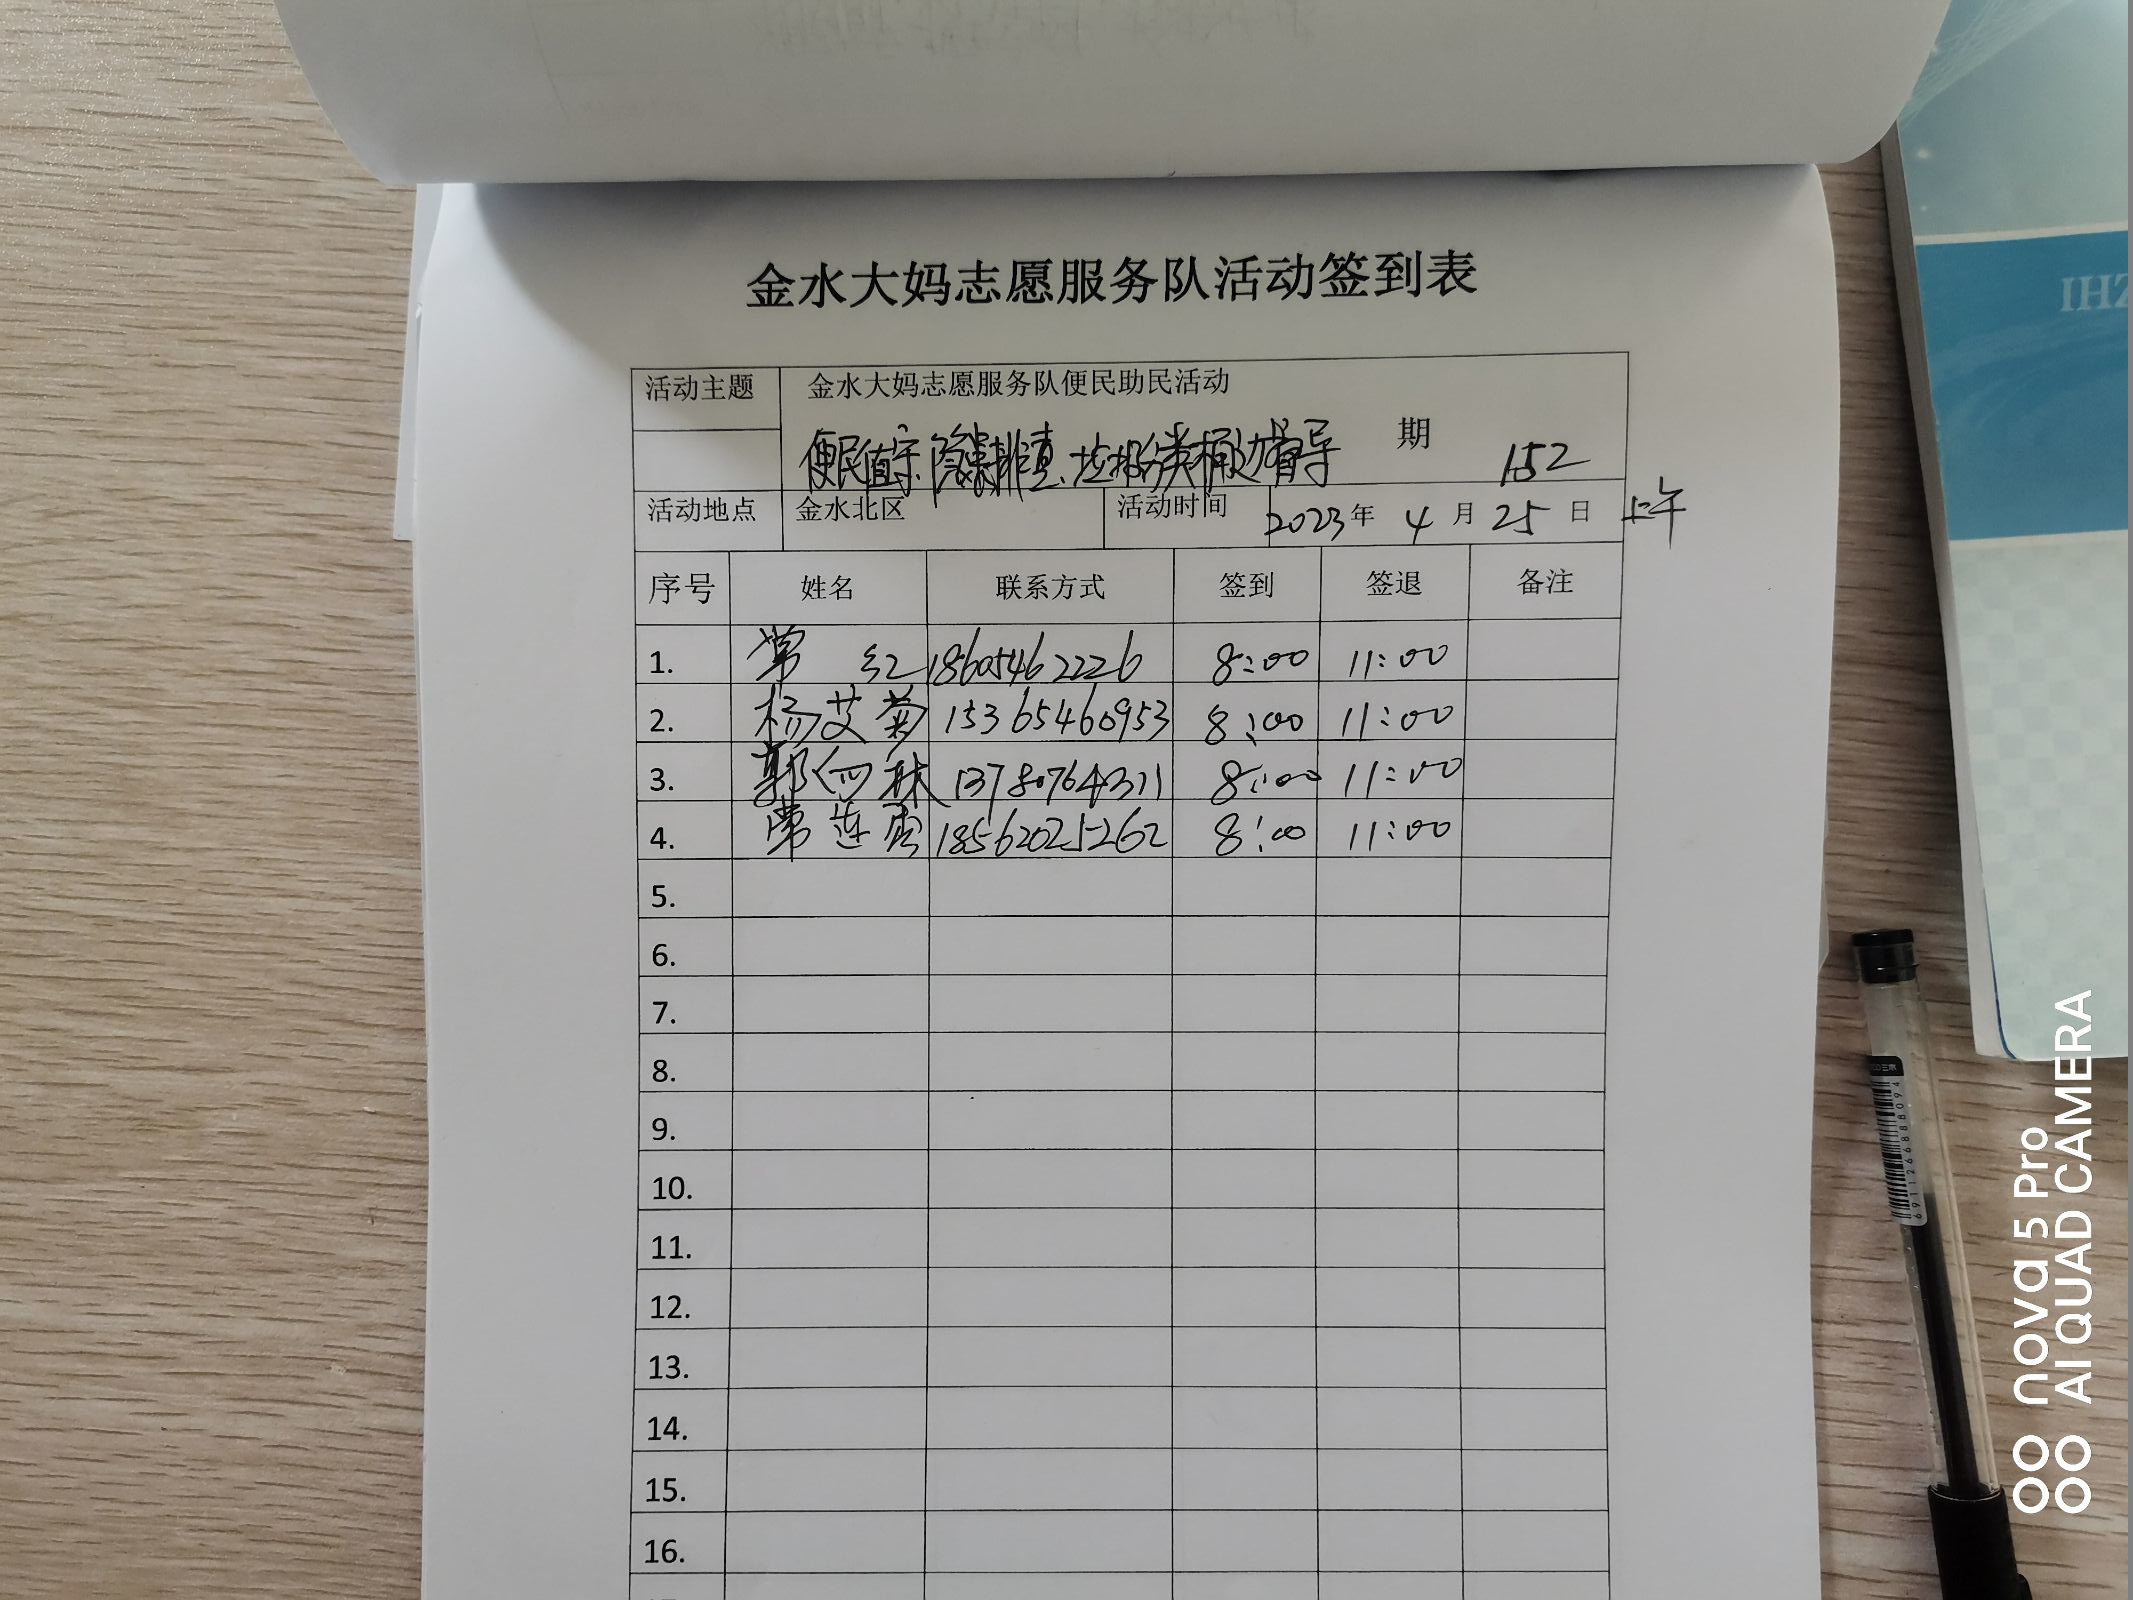 金水大妈志愿服务队活动签到表
活动主题 金水大妈志愿服务队便民助民活动
便民值守、隐患排查、垃圾分类桶边督导 期 152
活动地点 金水北区 活动时间 2023年 4月 25日 上午
序号 姓名 联系方式 签到 签退 备注
1. 常红 18605462226 8:00 11:00
2. 杨艾菊 15365460953 8:00 11:00
3. 郭 林 13780764311 8:00 11:00
4. 常连 18562025262 8:00 11:00
5.
6.
7.
8.
9.
10.
11.
12.
13.
14.
15.
16.
IHZ
6911266888094
nova 5 Pro
AI QUAD CAMERA